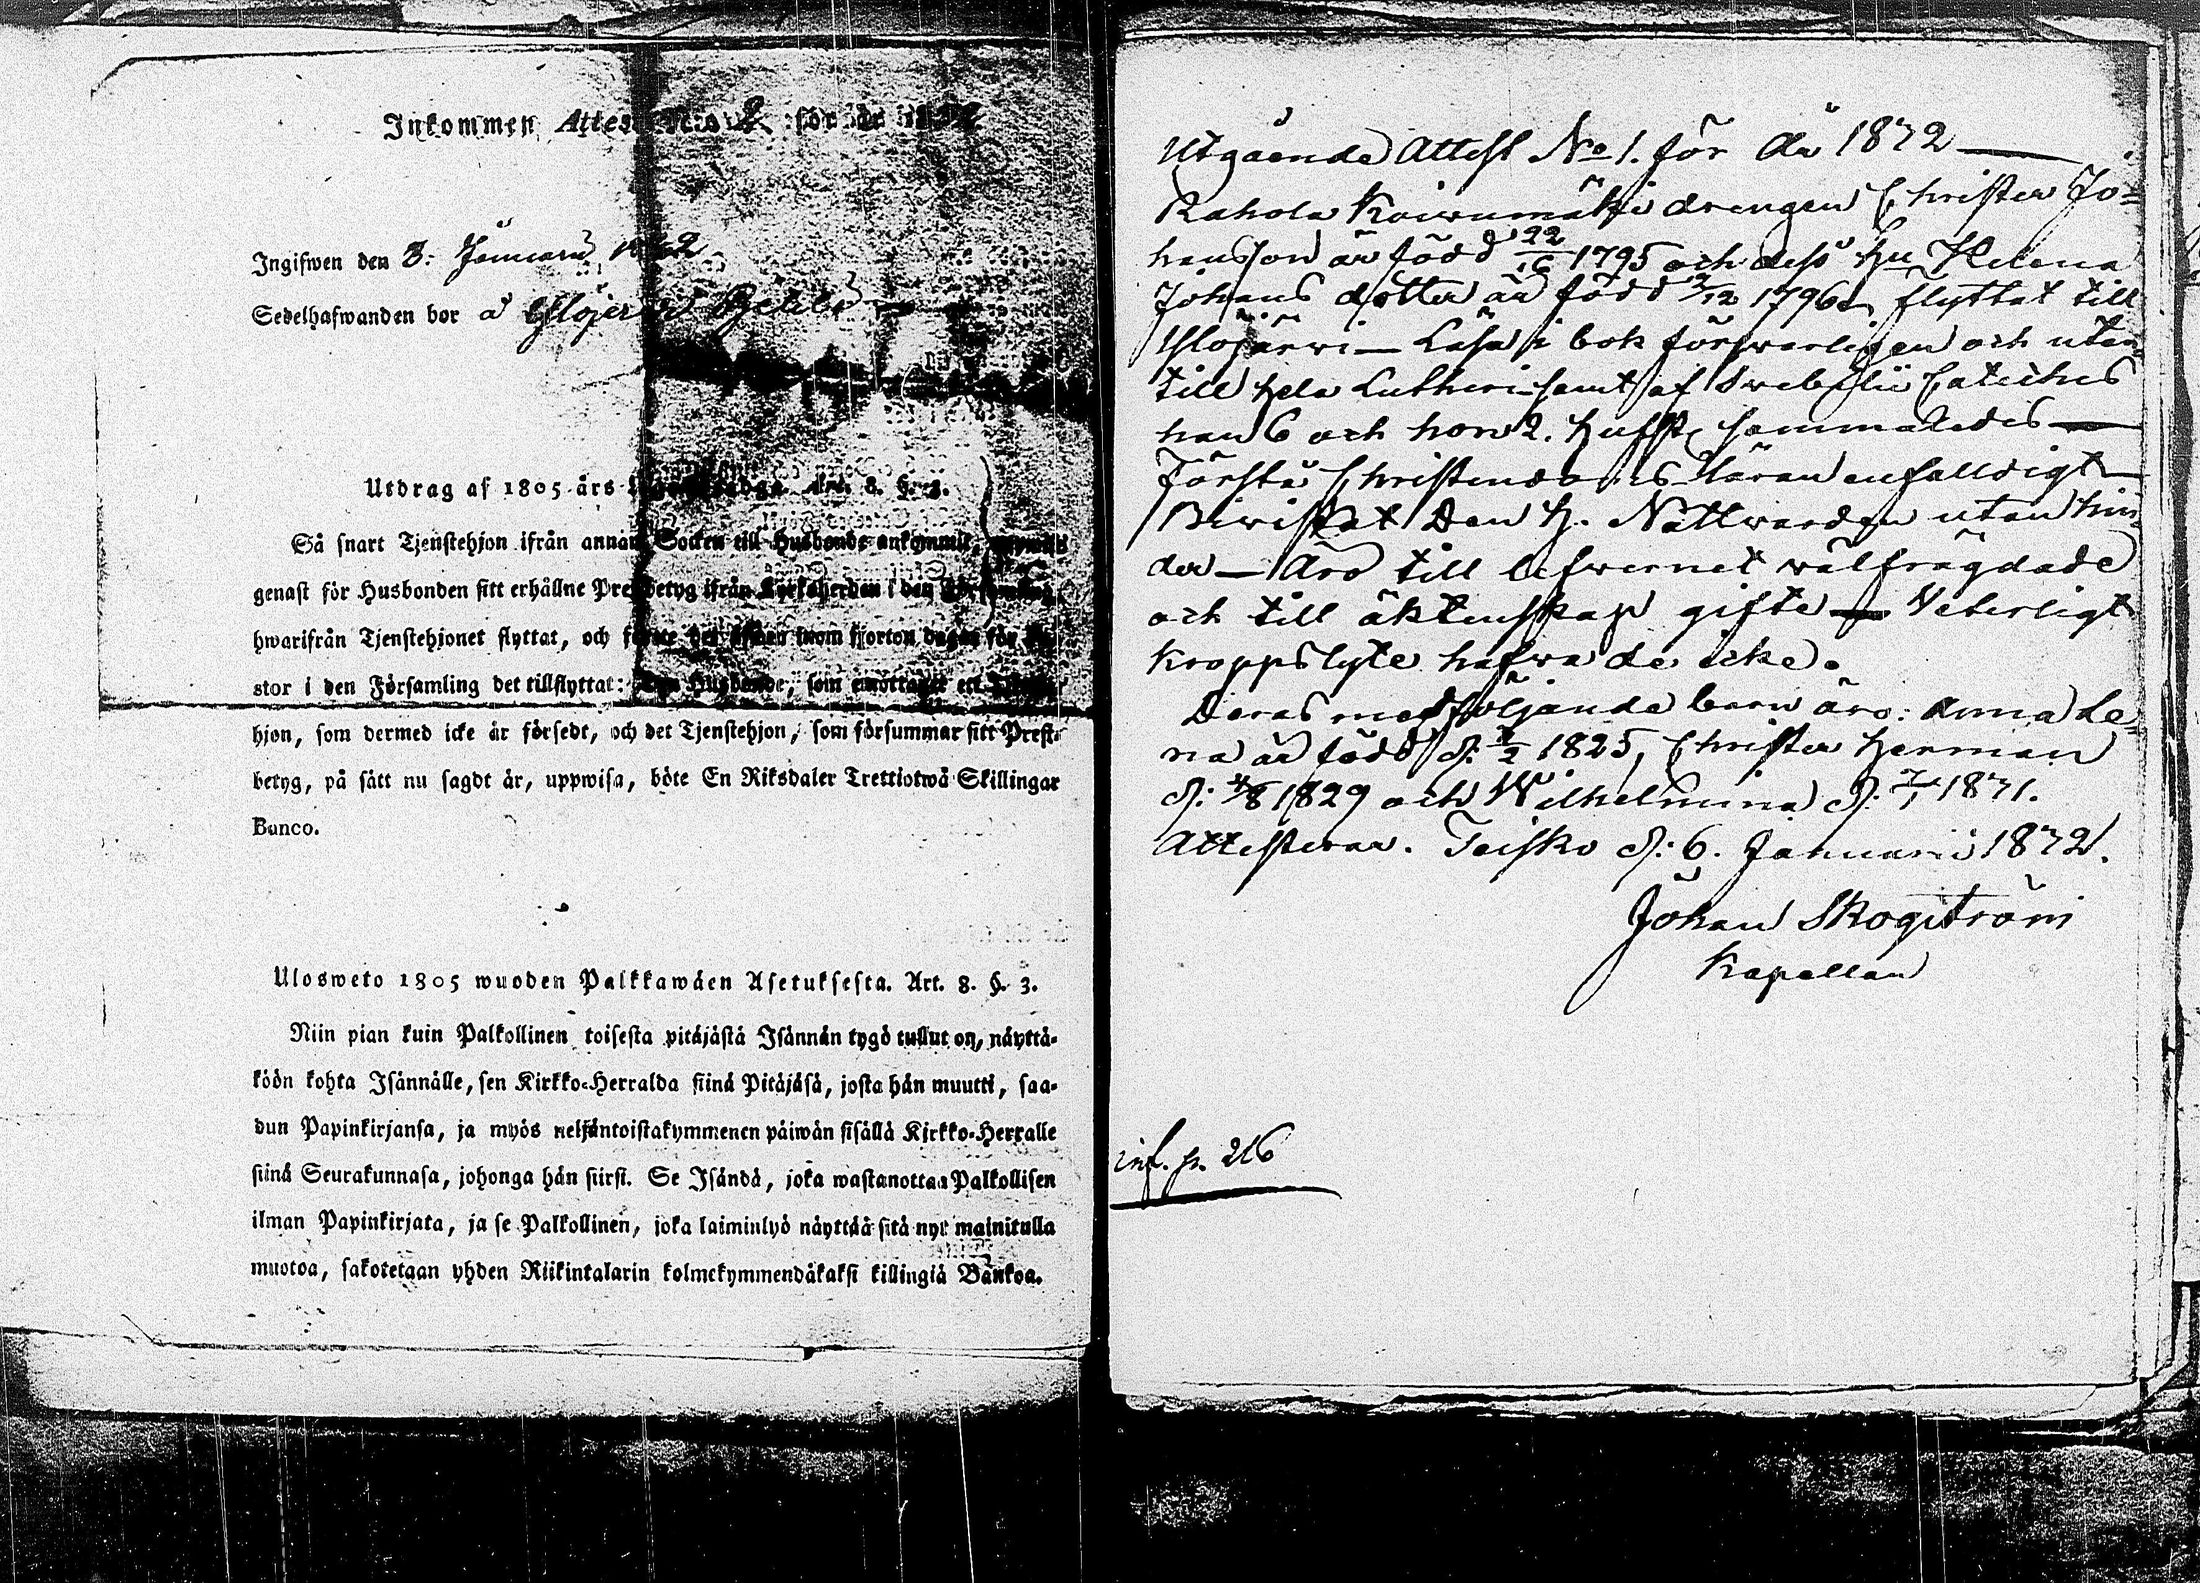 Inkommen Attest N:o 2 för år
Ingifwen den 8: Januarii
Sedelhafwanden bor å
Utdrag af 1805 års Art. 8. §. 3.
Så snart Tjenstehjon ifrån annan Socken till Husbonde ankommit,
genast för Husbonden sitt erhållne Prestbetyg ifrån Kyrkoherden i den Församling,
hwarifrån Tjenstehjonet flyttat, och inom fjorton dagar för
stor i den Församling det tillflyttat: Den Husbonde, som emottager ett
hjon, som dermed icke är försedt, och det Tjenstehjon, som försummar sitt Prest-
betyg, på sätt nu sagdt är, uppwisa, böte En Riksdaler Trettiotwå Skillingar
Banco.
Ulosweto 1805 wuoden Palkkawäen Asetuksesta. Art. 8. §. 3.
Niin pian kuin Palkollinen toisesta pitäjästä Isännän tygö tullut on, näyttä-
köön kohta Isännälle, sen Kirkko-Herralda siinä Pitäjäsä, josta hän muutti, saa-
dun Papinkirjansa, ja myös neljäntoistakymmenen päiwän sisällä Kirkko-Herralle
siinä Seurakunnasa, johonga hän siirsi. Se Isändä, joka wastanottaa Palkollisen
ilman Papinkirjata, ja se Palkollinen, joka laiminlyö näyttää sitä nyt mainitulla
muotoa, sakotetaan yhden Riikintalarin kolmekymmendäkaksi killingiä Bankoa.
Utgående Attest No 1. för år 1832
Rahola Koiwumäki drengen Christer Jo=
hansson är född 22/10 1795 och dess hu Helena
Johans dotter är född /12 1796, flyttat till
Ylöjärwi — Läsa i bok förswarligen och utan
till hela Lutheri samt af Swebelii Cateches
han 6 och hon 2. hufst. sammaledes —
Förstå Christendomes Läran enfalldigt
Biwistat Den H. Nattwarden utan hin
der — Äro till lefwernet wälfrägdade
och till äktenskap gifte — Veterligt
kroppslyte hafwa de icke.
Deras medföljande barn äro: Anna Le=
na är född d: /2 1825, Christer Herman
d: 4/8 1829 och Wilhelmina d: 7/1 1831.
Attesterar. Teisko d: 6. Januarii 1832.
Johan Skogström
Kapellan
inf. p. 216